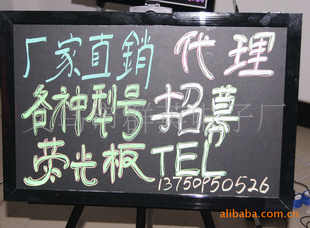 厂家直銷 代理
各种型号招募
荧光板TEL
13750950526
alibaba.com.cn